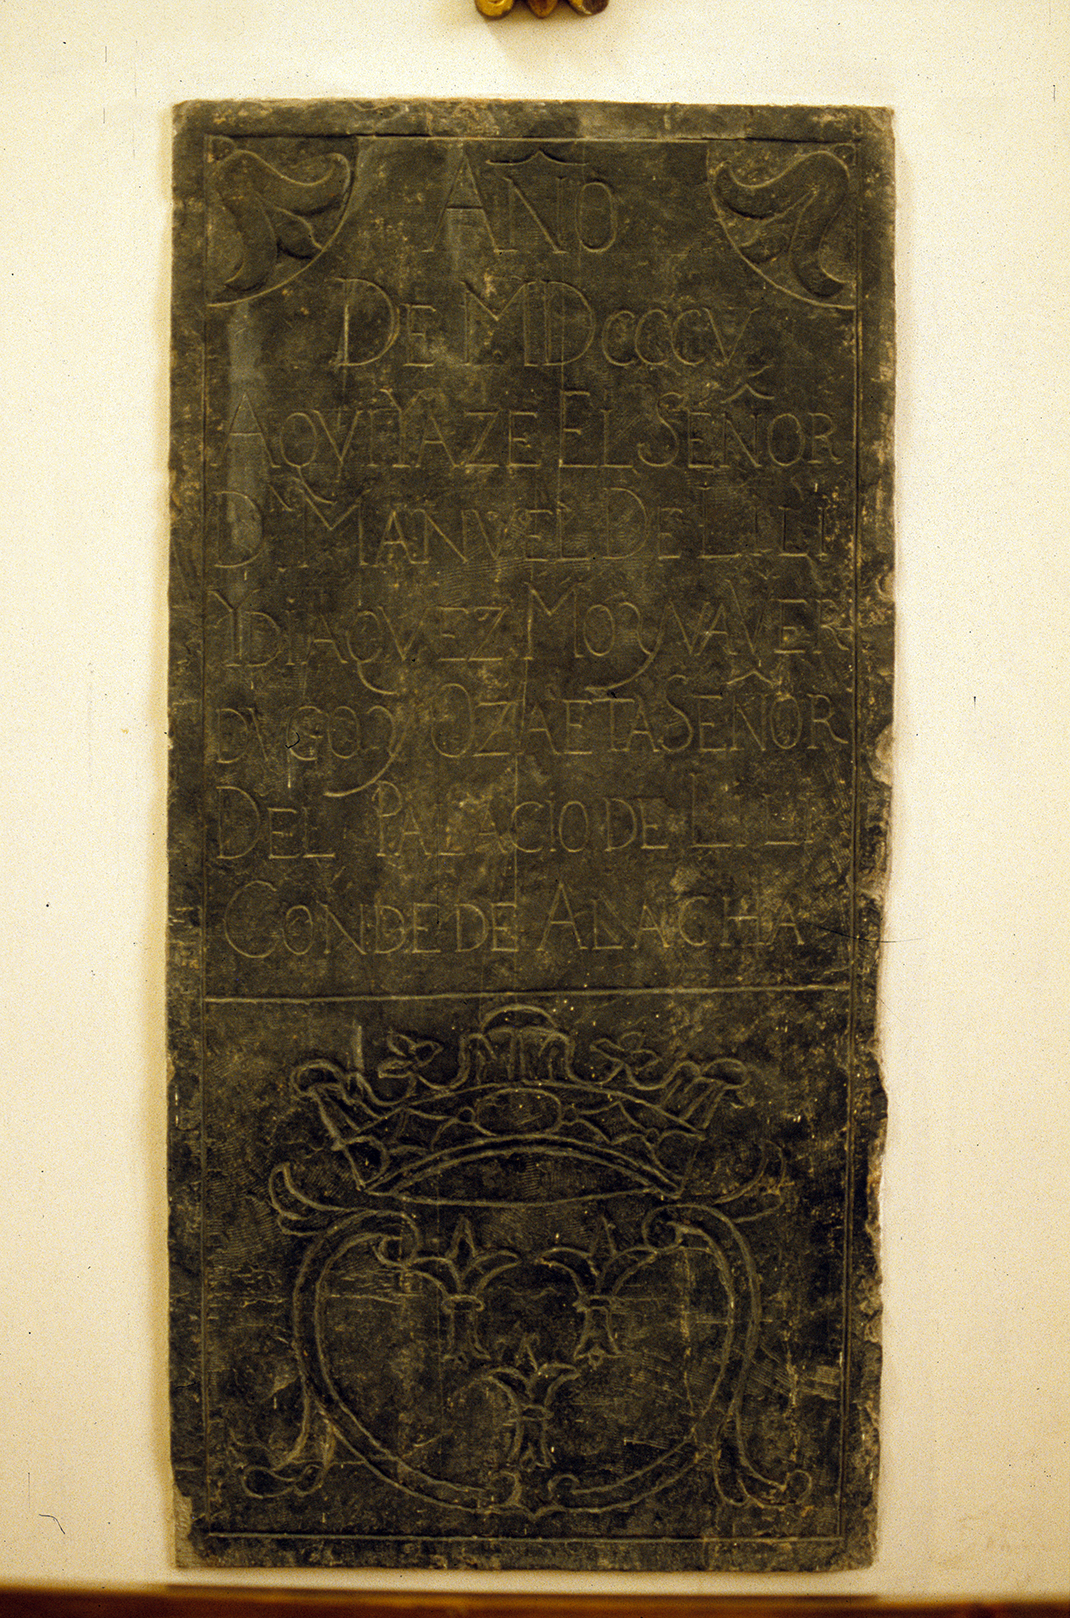 AÑO
DE MDCCCCV
AQVI YAZE EL SEÑOR
D.N MANVEL DE LILI
YDIAQVEZ MOQVAVER
DVGO Y OZAETA SEÑOR
DEL PALACIO DE LILI
CONDE DE ALACHA